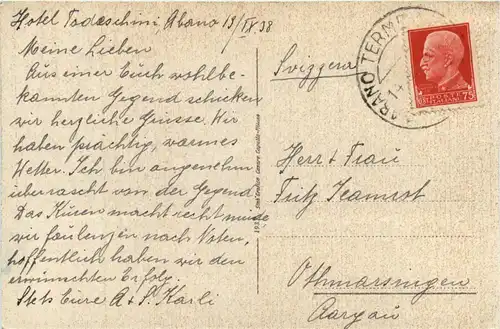 Hotel Todeschini, Abano 13/IX.38
Meine Lieben
Aus einer Euch wohlbe-
kannten Gegend schicken
wir herzliche Grüsse. Wir
haben prächtig, warmes
Wetter. Ich bin angenehm
überrascht von der Gegend
Das Kuren macht recht müde
wir faulenzen nach Noten,
hoffentlich haben wir den
erwünschten Erfolg.
Stets Eure A & P. Karli
Svizzera
ABANO TERME
POSTE ITALIANE
75
Herr & Frau
Fritz
Othmarsingen
Aargau